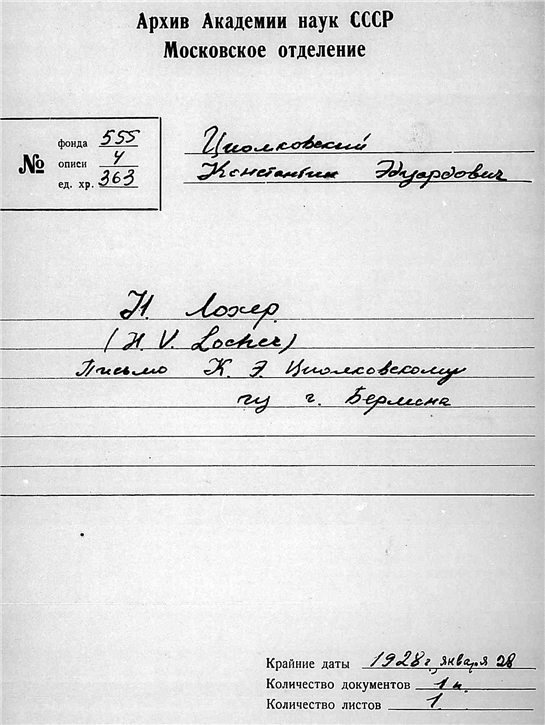 Архив Академии наук СССР
Московское отделение
№
фонда 555
описи 4
ед. хр. 363
Циолковский
Константин Эдуардович
Н. Лохер
(H. V. Locher)
Письмо К. Э. Циолковскому
из г. Берлина
Крайние даты 1928 г, января 28
Количество документов 1
Количество листов 1